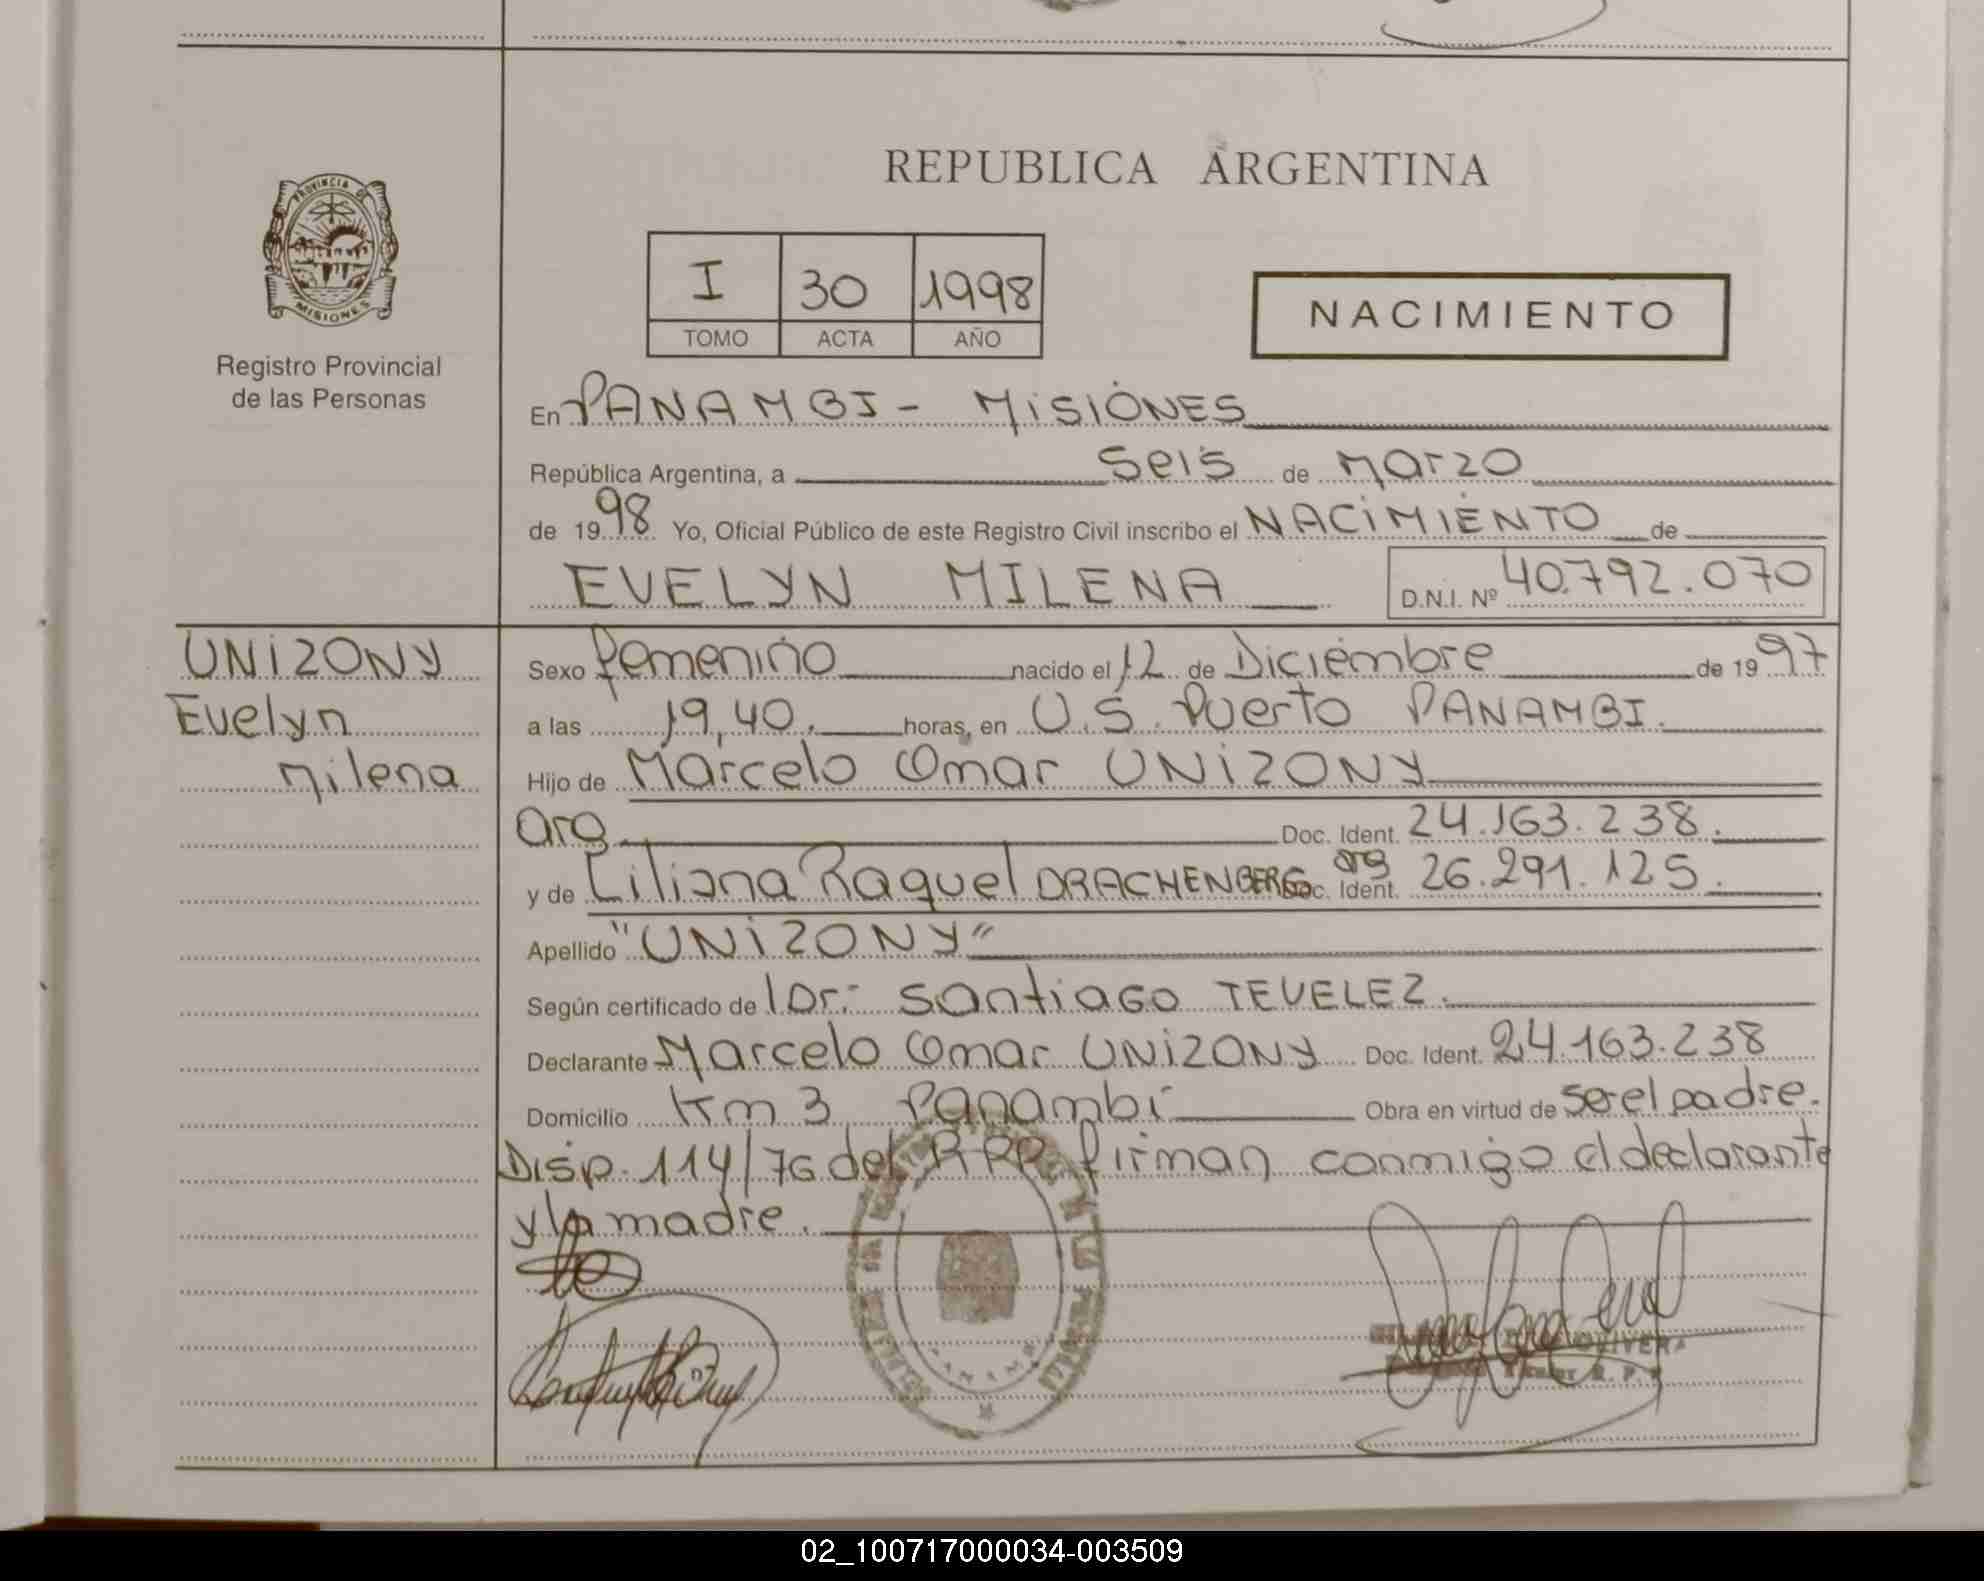 REPUBLICA ARGENTINA
PROVINCIA DE
MISIONES
Registro Provincial
de las Personas
I 30 1998
TOMO ACTA AÑO
NACIMIENTO
En PANAMBI - MISIONES
República Argentina, a seis de Marzo
de 1998 Yo, Oficial Público de este Registro Civil inscribo el NACIMIENTO de
EVELYN MILENA D.N.I. Nº 40.792.070
UNIZONY
Evelyn
Milena
Sexo femenino nacido el 12 de Diciembre de 1997
a las 19,40. horas, en U.S. Puerto PANAMBI.
Hijo de Marcelo Omar UNIZONY
arg. Doc. Ident. 24.163.238.
y de Liliana Raquel DRACHENBERG arg Doc. Ident. 26.291.125.
Apellido "UNIZONY"
Según certificado de Dr.: Santiago TEVELEZ.
Declarante Marcelo Omar UNIZONY Doc. Ident. 24.163.238
Domicilio Km 3 Panambi Obra en virtud de ser el padre.
Disp. 114/76 del RPP firman conmigo el declarante
y la madre.
OLIVERA
02_100717000034-003509